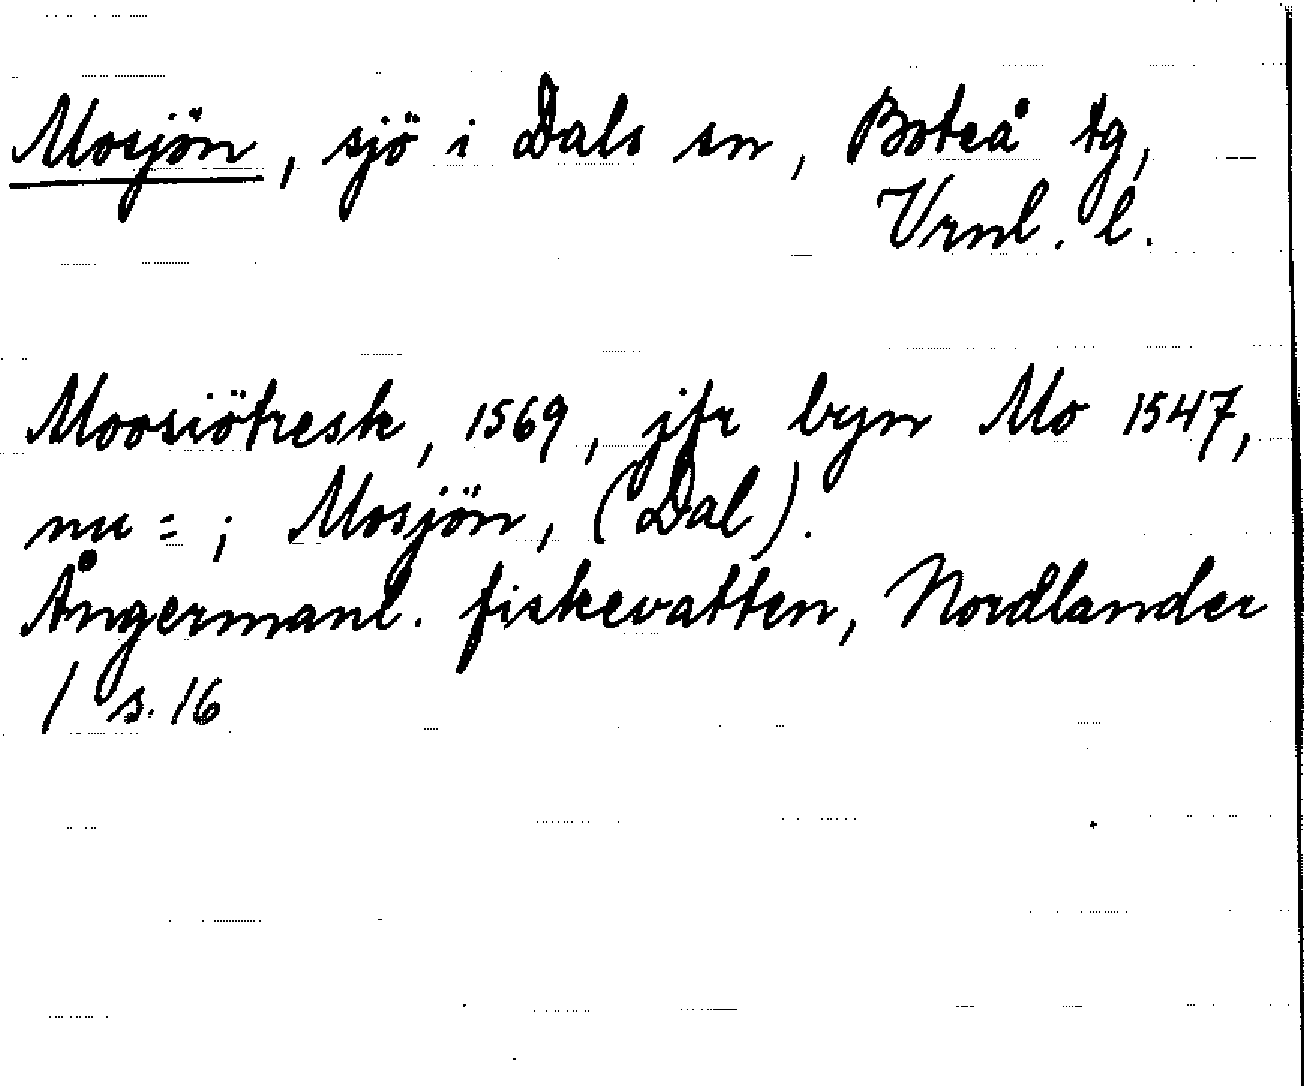 Mosjön, sjö i Dals sn, Boteå tg,
Vrnl. l.
Moosiötresk, 1569, jfr byn Mo 1547,
nu = ; Mosjön, (Dal).
Ångermanl. fiskevatten, Nordlander
/ s. 16